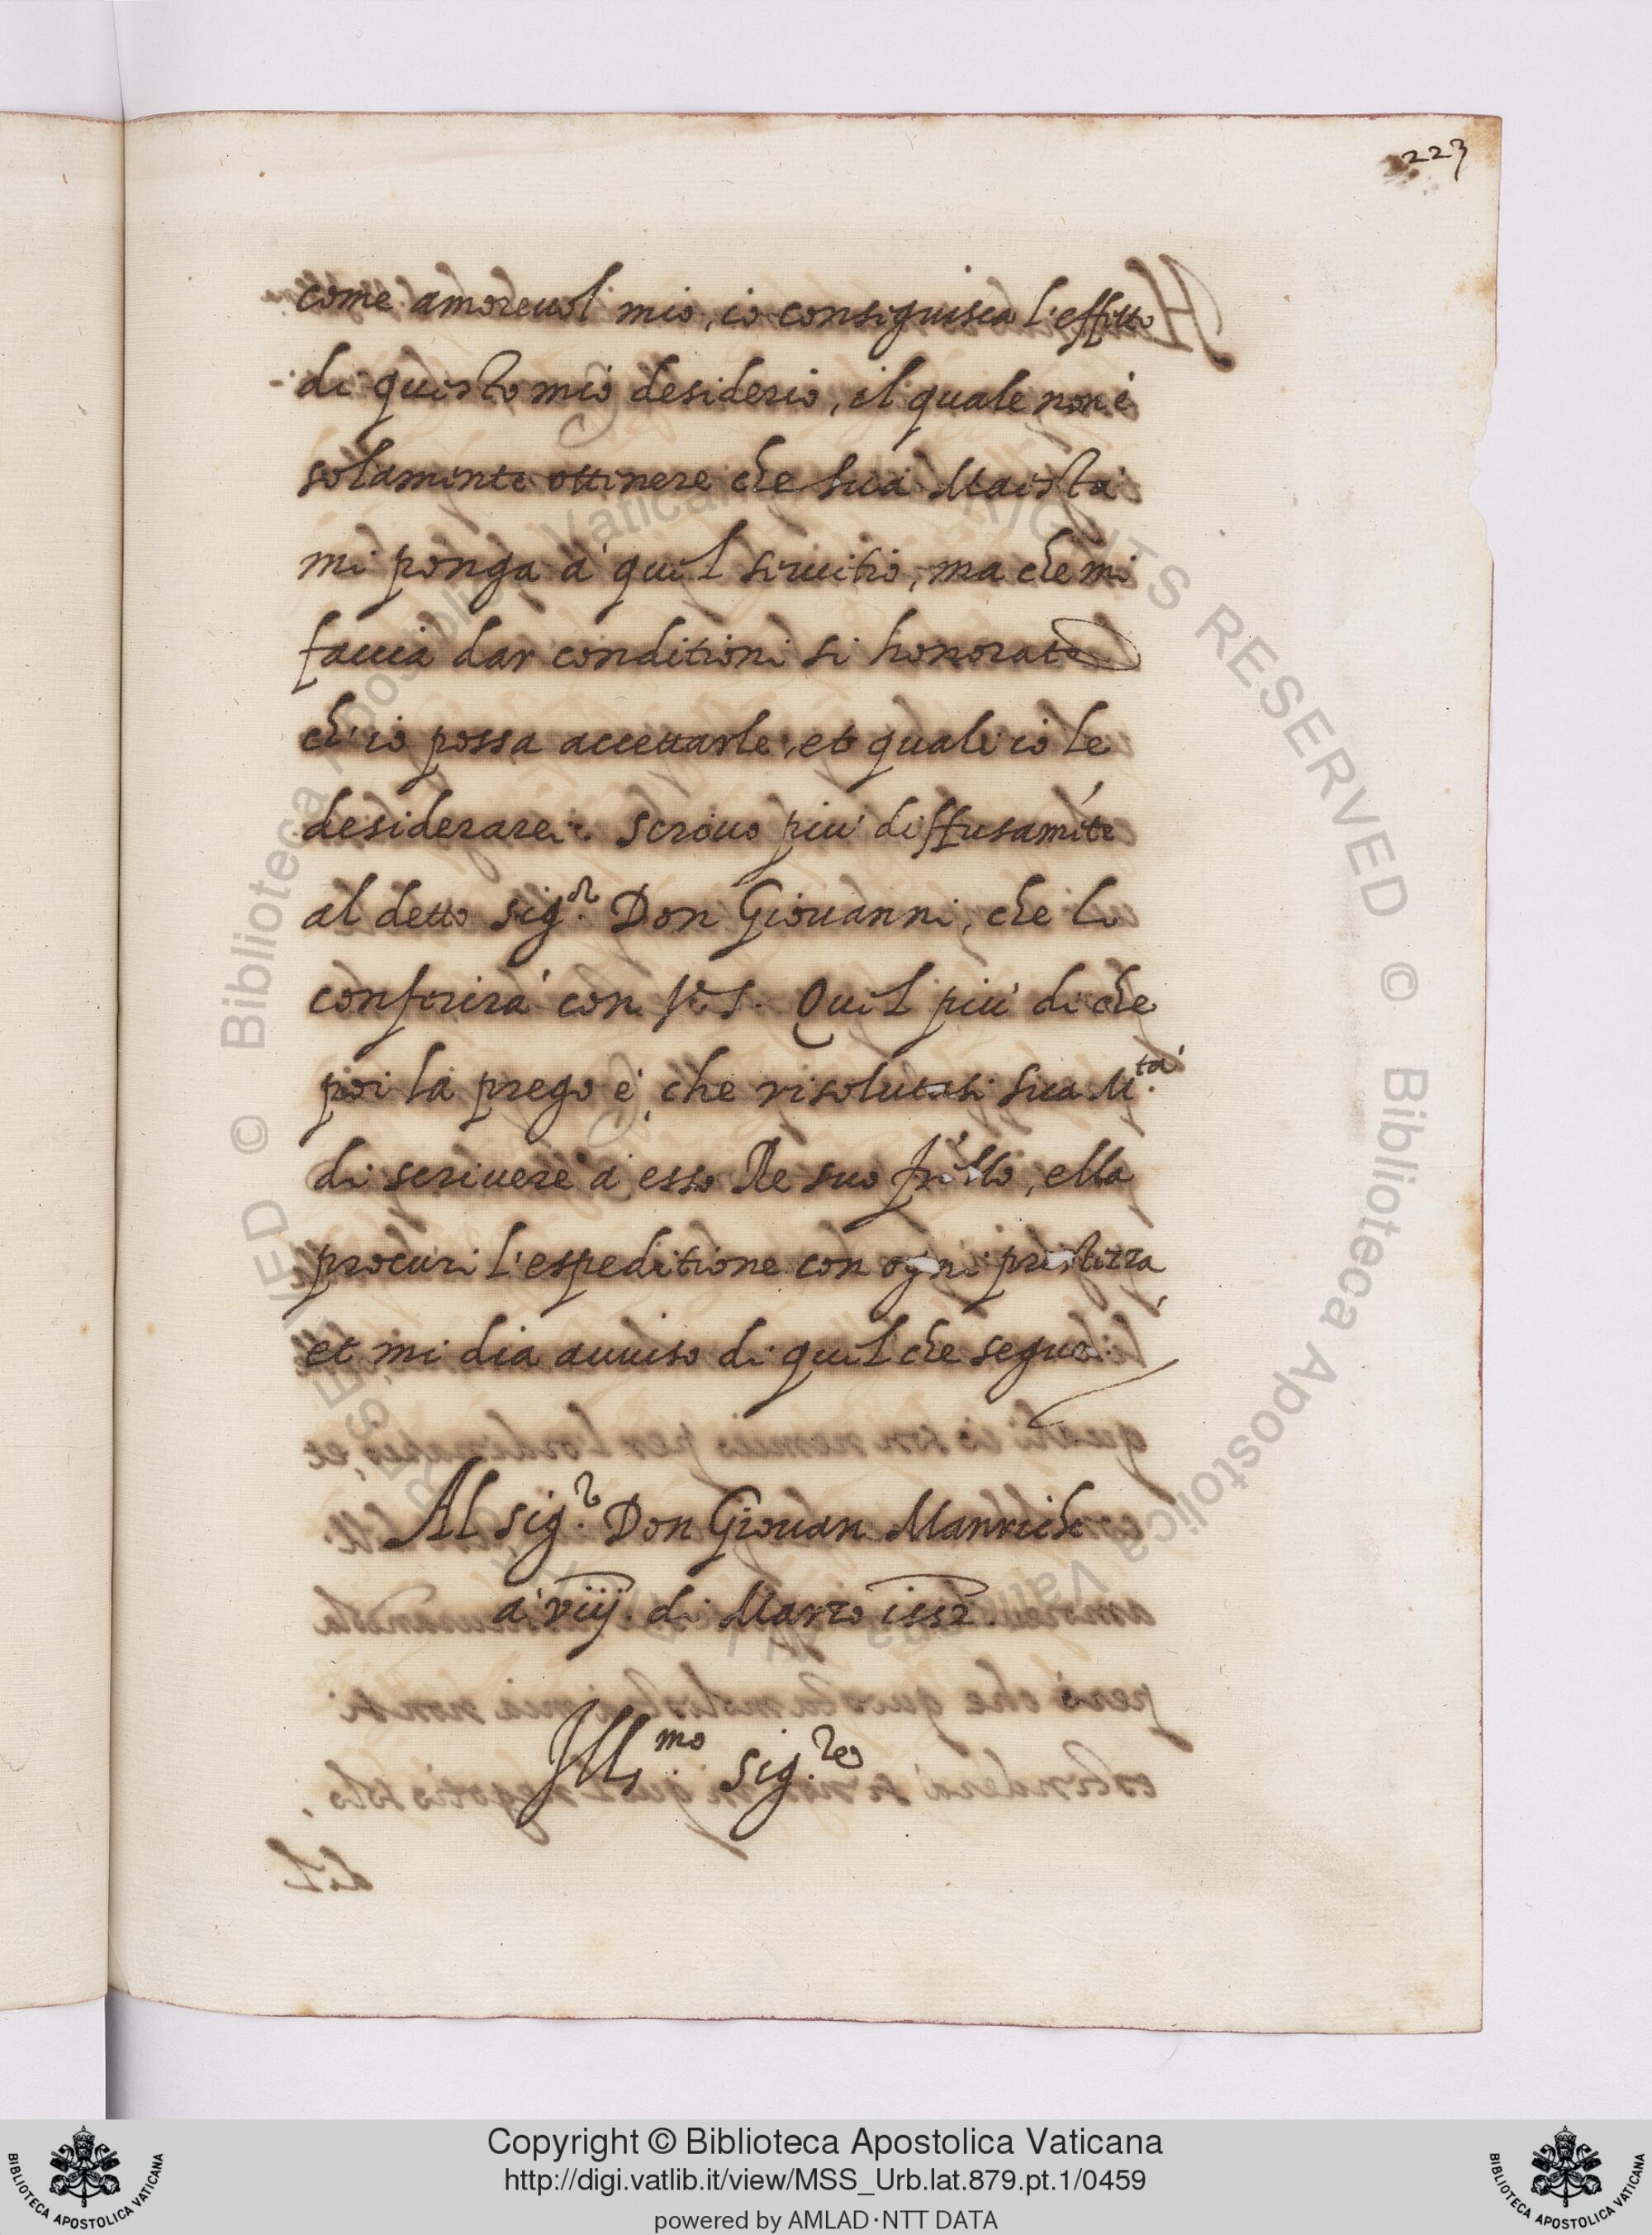 223
come amoreuol mio, io conseguisca l'effetto
di questo mio desiderio, il quale non è
solamente ottenere che sua Maestà
mi ponga à quel seruitio, ma che mi
faccia dar conditioni si honorate
ch'io possa accettarle, et quali io le
desiderarei. Scriuo piu diffusamẽte
al detto sig.r Don Giouanni, che lo
conferirà con V. S. Quel piu di che
poi la prego è, che risolutasi sua M.tà
di scriuere à esso Re suo frẽllo, ella
procuri l'espeditione con ogni prestezza
et mi dia auuiso di quel che seguà.
Al sig.r Don Giouan Manriche
à viij. di Marzo 1552.
Ill.mo sig.re
Copyright © Biblioteca Apostolica Vaticana
http://digi.vatlib.it/view/MSS_Urb.lat.879.pt.1/0459
powered by AMLAD·NTT DATA